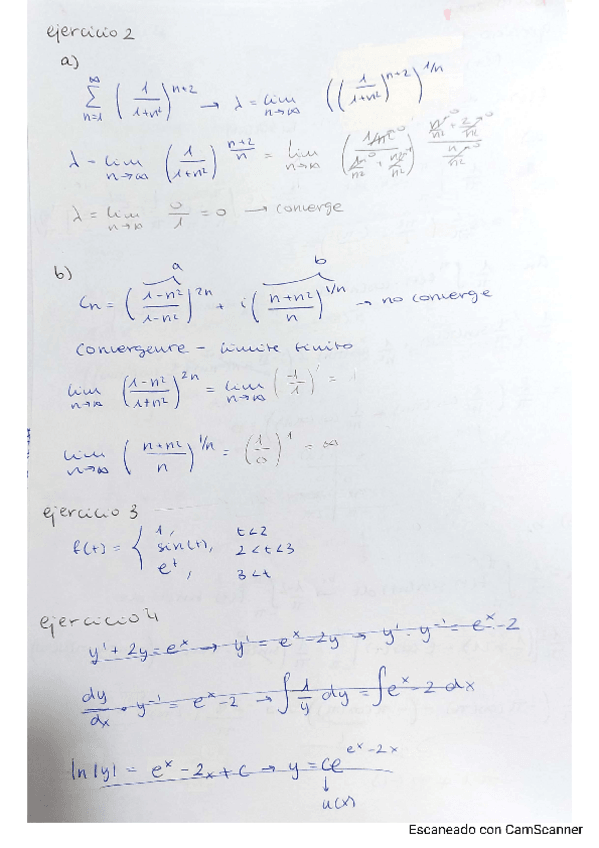 ejercicio 2
a)
∑_{n=1}^{∞} (1/(1+n²))^{n+2} → λ = lim_{n→∞} ((1/(1+n²))^{n+2})^{1/n}
λ = lim_{n→∞} (1/(1+n²))^{(n+2)/n} = lim_{n→∞}
λ = lim_{n→∞} 0/1 = 0 → converge
b)
a b
Cn = ((1-n²)/(1-n²))^{2n} + i((n+n²)/n)^{1/n} → no converge
convergente - limite finito
lim_{n→∞} ((1-n²)/(1+n²))^{2n} = lim_{n→∞} (1/1)' =
lim_{n→∞} ((n+n²)/n)^{1/n} = (1/0)^1 = ∞
ejercicio 3
f(t) = { 1, t<2
sin(t), 2<t<3
e^t, 3<t
ejercicio 4
y' + 2y = e^x → y' = e^x - 2y → y' · y^{-1} = e^x - 2
dy/dx · y^{-1} = e^x - 2 → ∫ 1/y dy = ∫ e^x - 2 dx
ln|y| = e^x - 2x + c → y = ce^{e^x - 2x}
↓
u(x)
Escaneado con CamScanner